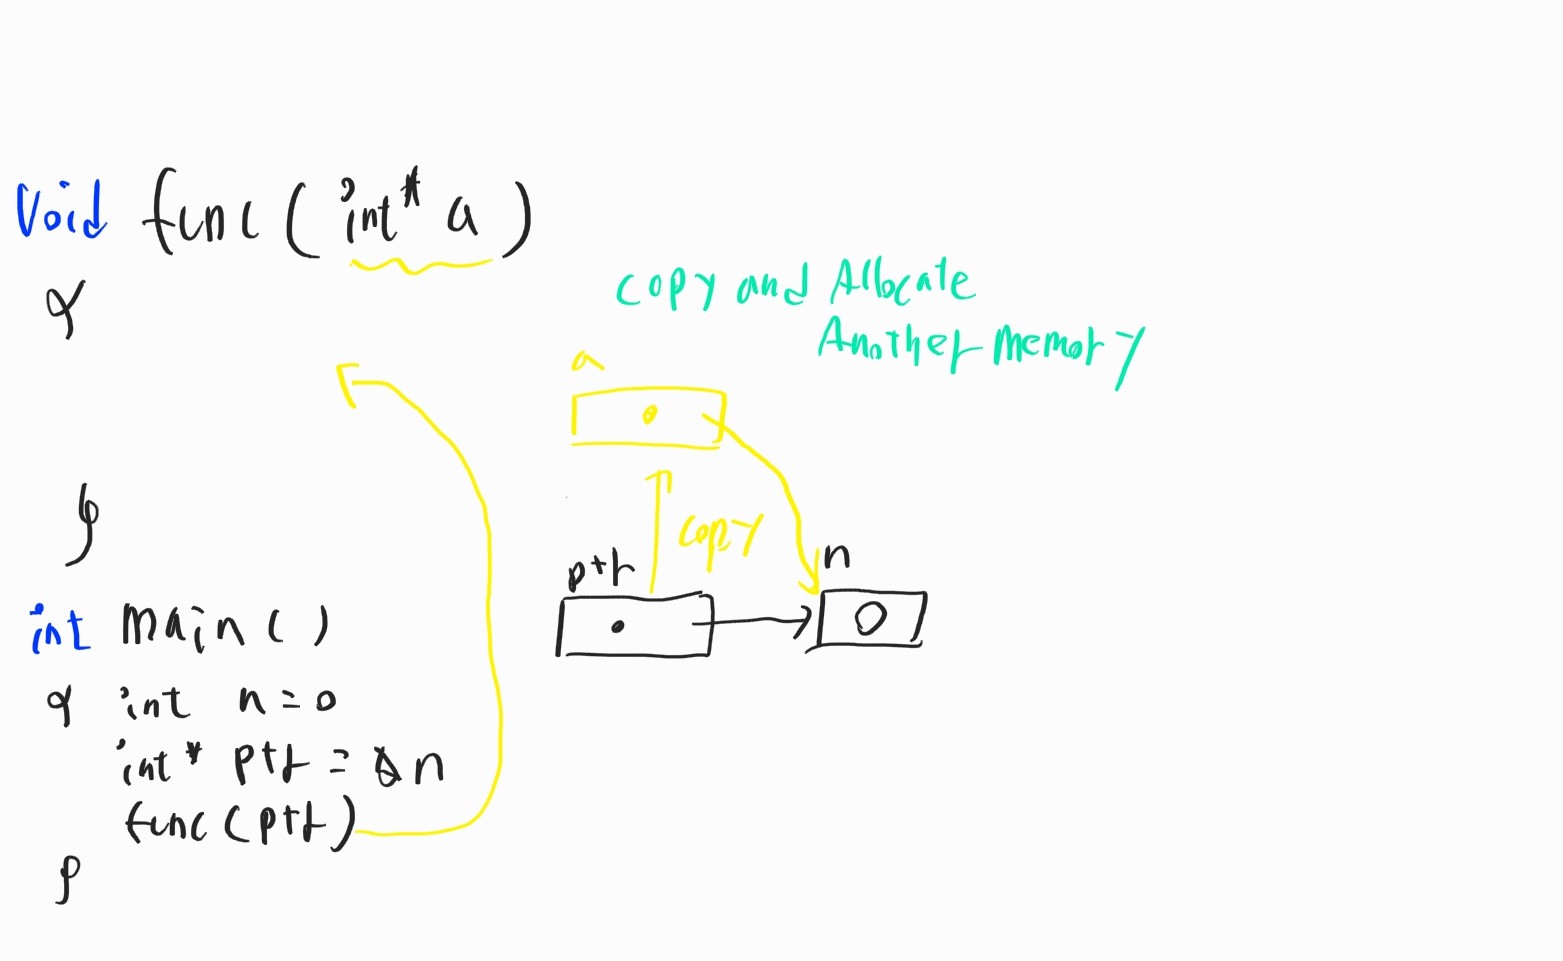 Void func ( int* a )
{
}
int main ( )
{ int n = 0
int* ptr = &n
func (ptr)
}
copy and Allocate
Another memory
a
copy
ptr
n
0